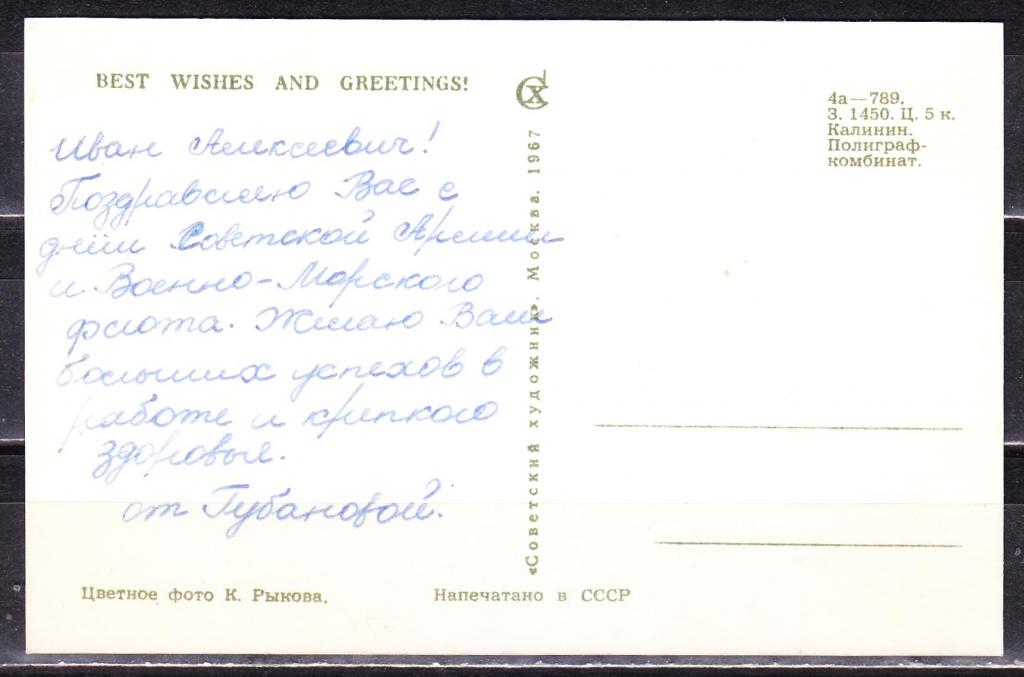 BEST WISHES AND GREETINGS!
Иван Алексеевич!
Поздравляю Вас с
днём Советской Армии
и Военно-Морского
флота. Желаю Вам
больших успехов в
работе и крепкого
здоровья.
от Губановой.
Цветное фото К. Рыкова.
Напечатано в СССР
СХ
«Советский художник». Москва. 1967
4а—789.
З. 1450. Ц. 5 к.
Калинин.
Полиграф-
комбинат.